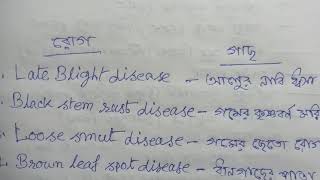 রোগ গাছ
Late Blight disease – আলুর নাবি ধ্বসা
Black stem rust disease – গমের কৃষ্ণবর্ণ মরি
Loose smut disease – গমের ছেতো রোগ
Brown leaf spot disease –